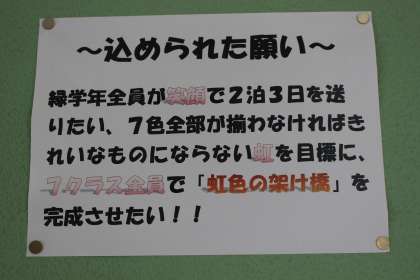 ～込められた願い～
緑学年全員が笑顔で２泊３日を送
りたい、７色全部が揃わなければき
れいなものにならない虹を目標に、
７クラス全員で「虹色の架け橋」を
完成させたい！！